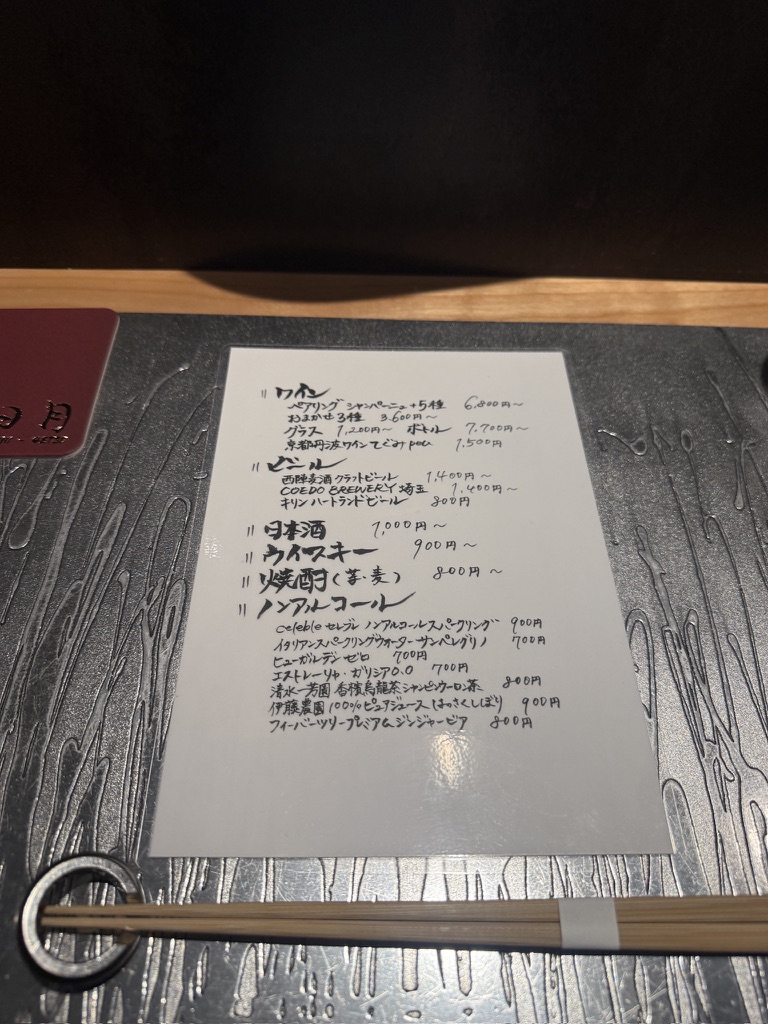 日月
〃ワイン
ペアリング シャンパーニュ+5種 6,800円〜
おまかせ3種 3,600円〜
グラス 1,200円〜 ボトル 7,700円〜
京都丹波ワイン てぐみ peu 1,500円
〃ビール
西陣麦酒 クラフトビール 1,400円〜
COEDO BREWERY 埼玉 1,400円〜
キリン ハートランドビール 800円
〃日本酒 1,000円〜
〃ウイスキー 900円〜
〃焼酎(芋・麦) 800円〜
〃ノンアルコール
celeble セレブレ ノンアルコールスパークリング 900円
イタリアンスパークリングウォーター サンペレグリノ 700円
ヒューガルデン ゼロ 700円
エストレーリャ・ガリシア0.0 700円
清水一芳園 香檳烏龍茶 シャンピンウーロン茶 800円
伊藤農園 100%ピュアジュース はっさくしぼり 900円
フィーバーツリー プレミアムジンジャービア 800円